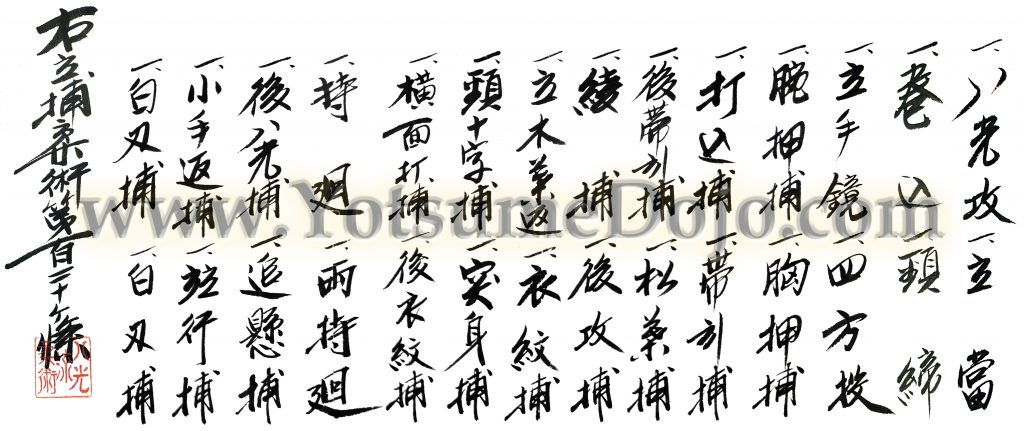 一、八光攻 一、立當
一、巻込 一、頸締
一、立手鏡 一、四方投
一、腕押捕 一、胸押捕
一、打込捕 一、帯引捕
一、後帯引捕 一、松葉捕
一、綾捕 一、後攻捕
一、立木葉返 一、衣紋捕
一、頸十字捕 一、突身捕
一、横面打捕 一、後衣紋捕
一、持廻 一、両持廻
一、後八光捕 一、追懸捕
一、小手返捕 一、竝行捕
一、白刃捕 一、白刃捕
右立捕柔術第百二十ヶ條
www.YotsumeDojo.com